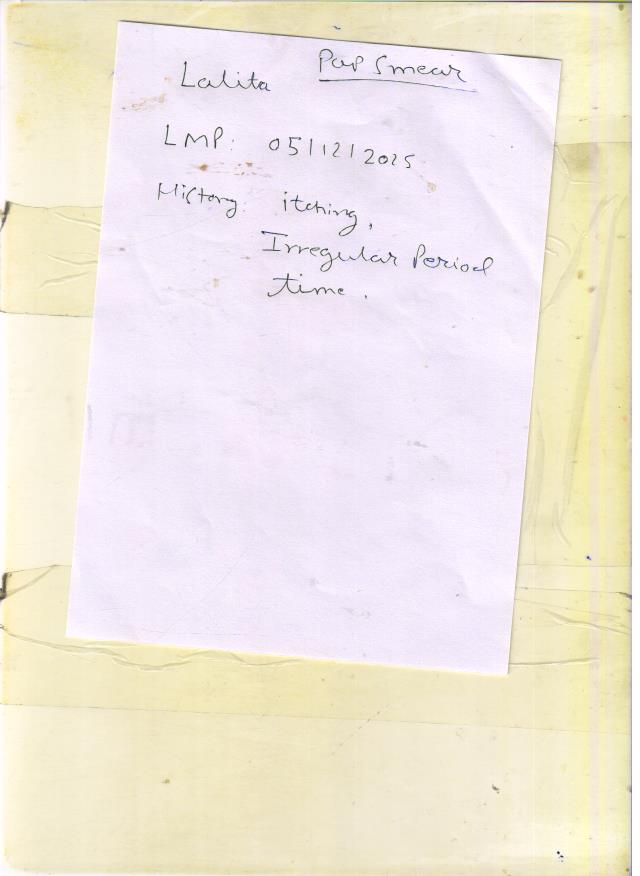 Pap Smear
Lalita
LMP: 05/12/2025
History: itching,
Irregular Period
time.